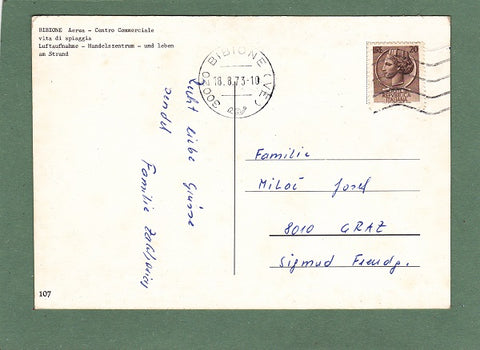 BIBIONE Aerea - Centro Commerciale
vita di spiaggia
Luftaufnahme - Handelszentrum - und leben
am Strand
30020 BIBIONE (VE)
18.8.73-10
Recht liebe Grüsse
sendet
Familie
Familie
Miloč Josef
8010 GRAZ
Sigmud Freudg.
107